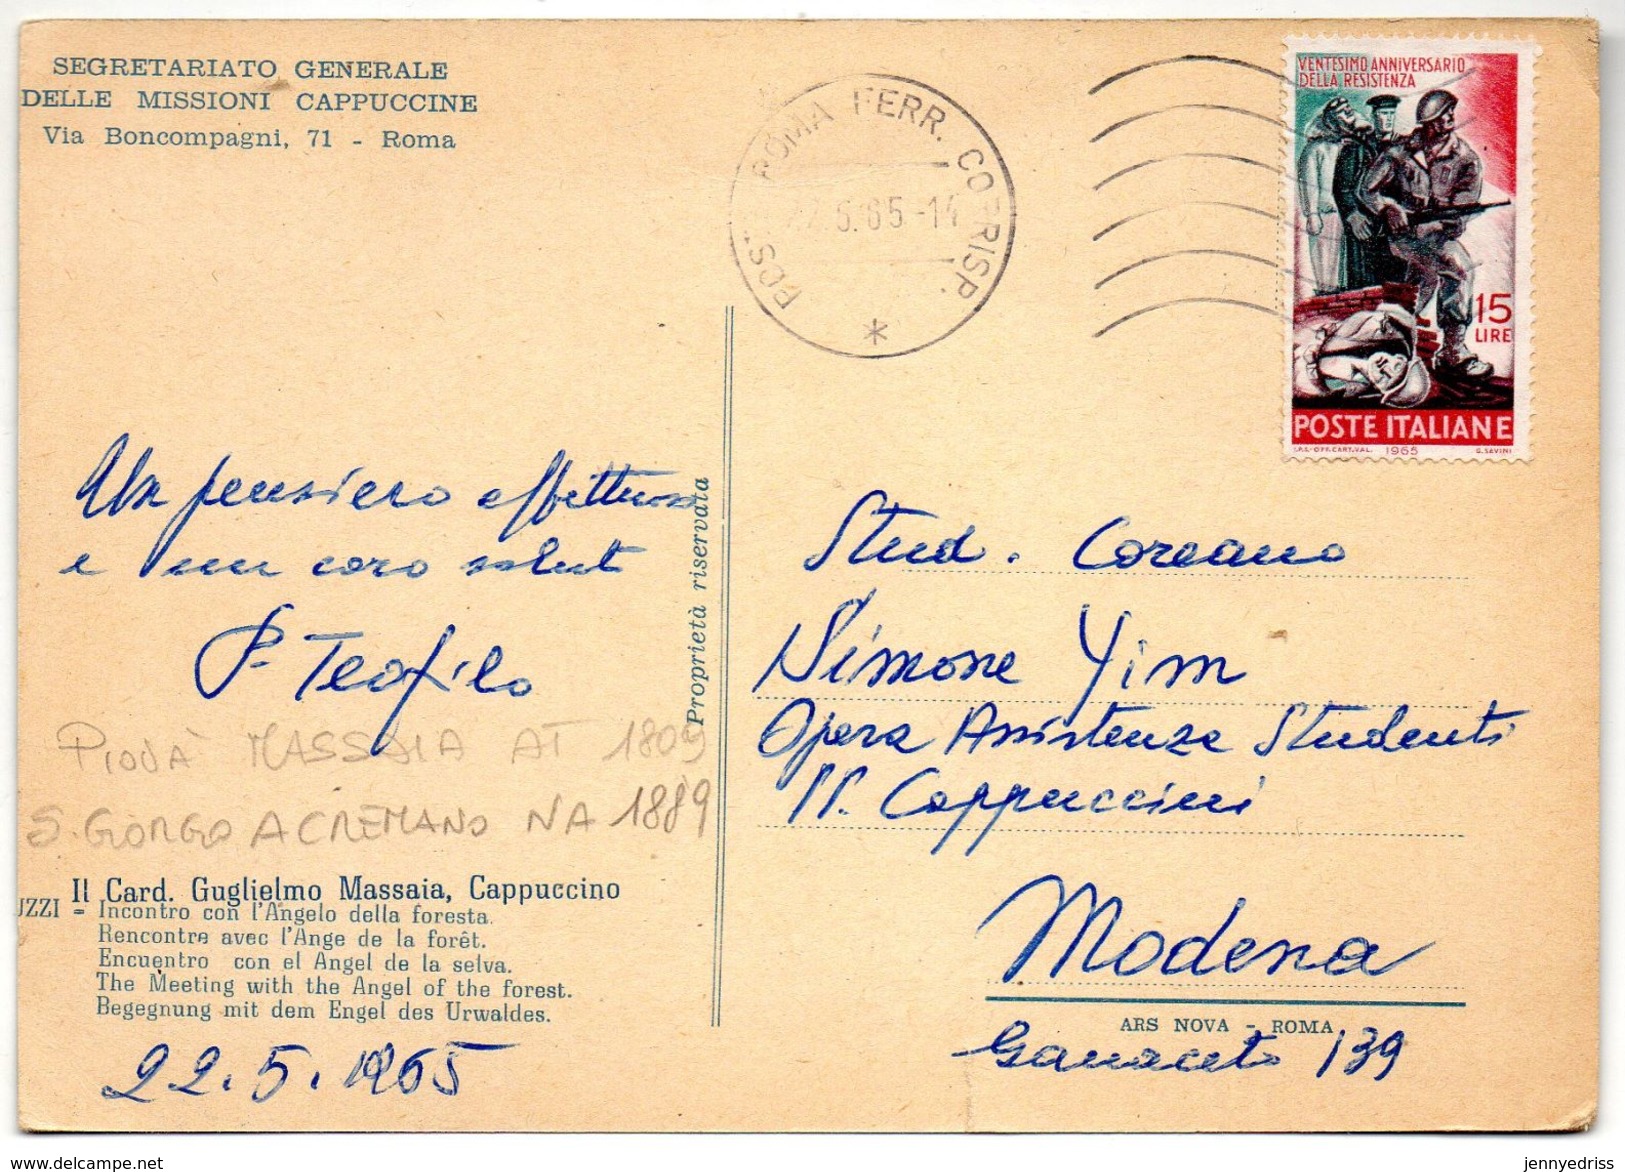 SEGRETARIATO GENERALE
DELLE MISSIONI CAPPUCCINE
Via Boncompagni, 71 - Roma
ROMA FERR. CORRISP.
2.5.65-14
VENTESIMO ANNIVERSARIO
DELLA RESISTENZA
15
LIRE
POSTE ITALIANE
I.P.S.-OFF.CART.VAL. 1965 G.SAVINI
Un pensiero affettuoso
e un caro saluto
P. Teofilo
PIOVÀ MASSAIA AT 1809
S. GIORGO A CREMANO NA 1889
Il Card. Guglielmo Massaia, Cappuccino
UZZI - Incontro con l'Angelo della foresta.
Rencontre avec l'Ange de la forêt.
Encuentro con el Angel de la selva.
The Meeting with the Angel of the forest.
Begegnung mit dem Engel des Urwaldes.
22.5.1965
Proprietà riservata
Stud. Coreano
Simone Yim
Opera Assistenza Studenti
PP. Cappuccini
Modena
ARS NOVA - ROMA
Ganaceto 139
jennyedriss
delcampe.net